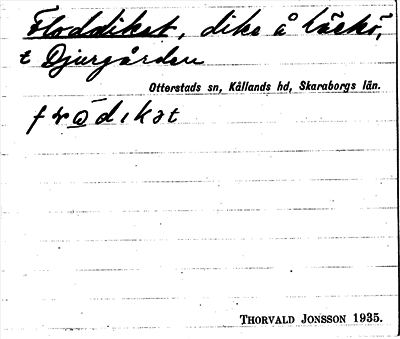 Floddiket, dike å Läckö,
t Djurgården
Otterstads sn, Kållands hd, Skaraborgs län.
THORVALD JONSSON 1935.